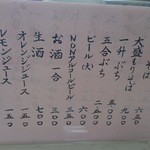 そば
大盛もりそば 六五〇
一升ぶち
五合ぶち
ビール(大) 六〇〇
NONアルコールビール 三五〇
お酒 一合 三五〇
生酒 七〇〇
オレンジジュース 一五〇
レモンジュース 一五〇